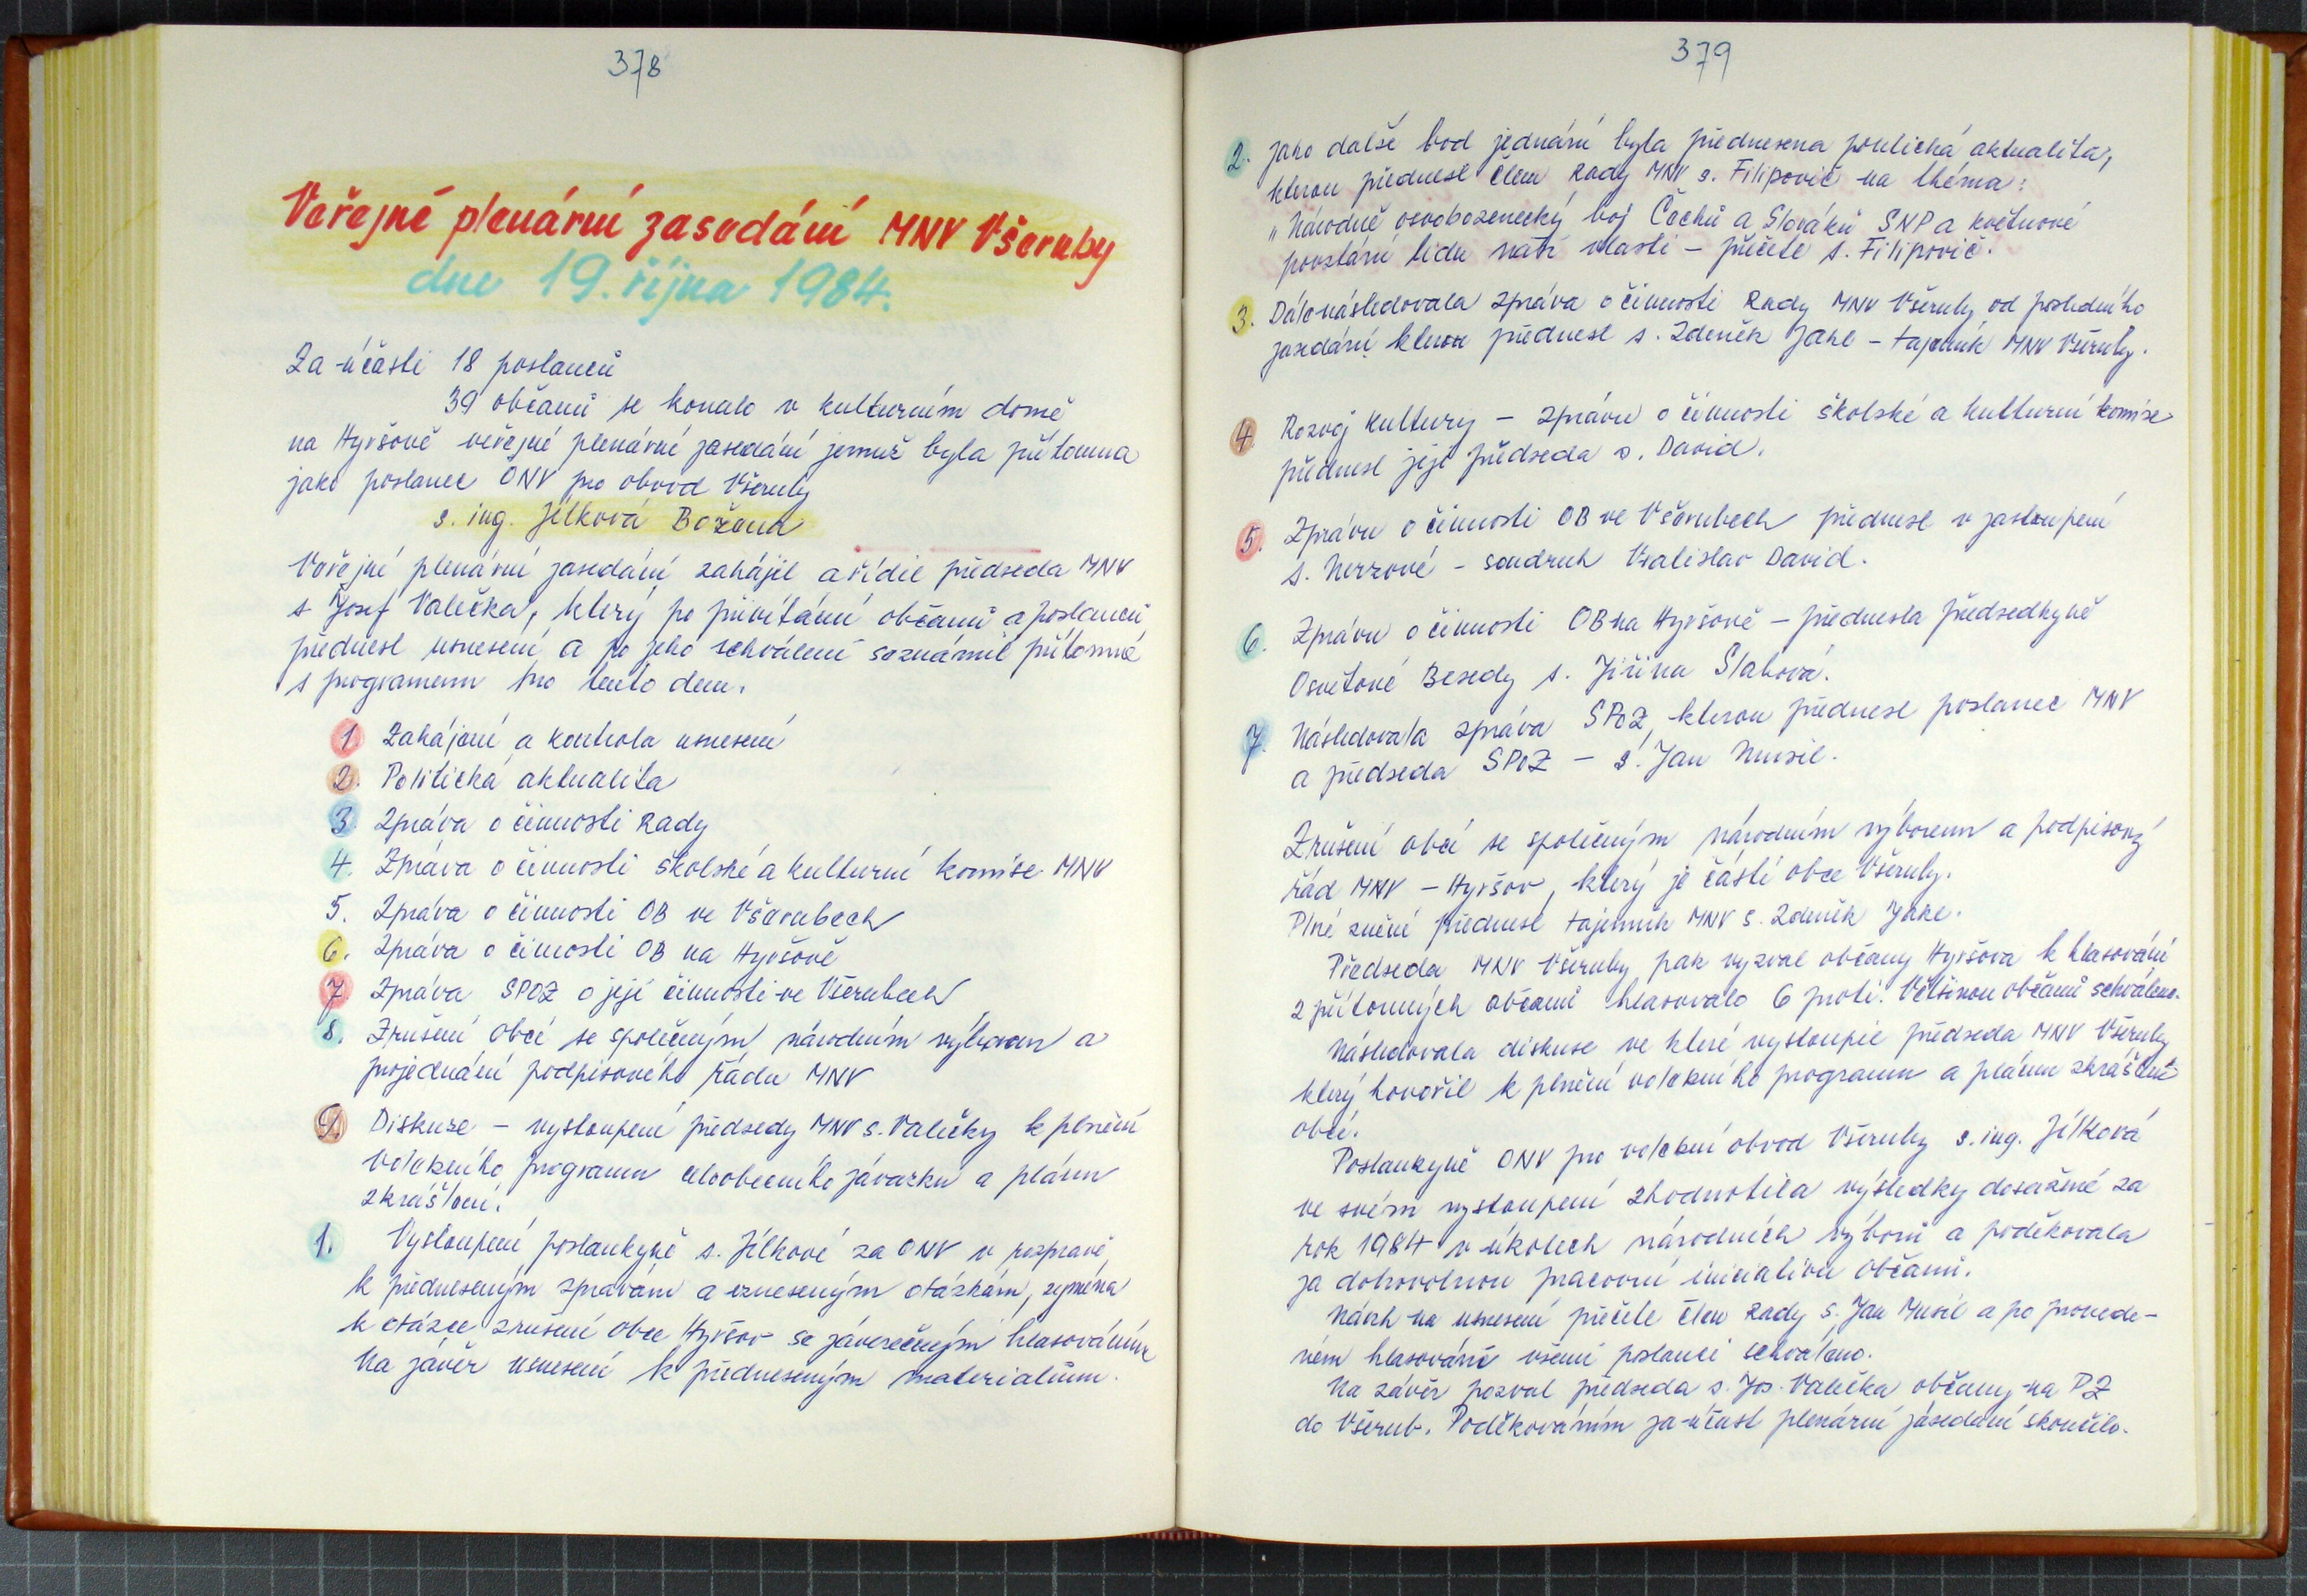 378
Veřejné plenární zasedání MNV Všeruby
dne 19. října 1984.
Za účasti 18 poslanců
39 občanů se konalo v kulturním domě
na Hyršově veřejné plenární zasedání jemuž byla přítomna
jako poslanec ONV pro obvod Všeruby
s. ing. Jílková Božena
Veřejné plenární zasedání zahájil a řídil předseda MNV
s Josef Valečka, který po přivítání občanů a poslanců
přednesl usnesení a po jeho schválení seznámil přítomné
s programem pro tento den.
1 Zahájení a kontrola usnesení
2. Politická aktualita
3 Zpráva o činnosti Rady
4. Zpráva o činnosti školské a kulturní komise MNV
5. Zpráva o činnosti OB ve Všerubech
6. Zpráva o činosti OB na Hyršově
7 Zpráva SPOZ o její činnosti ve Všerubech
8. Zrušení obcí se společným národním výborem a
projednání podpisového řádu MNV
9. Diskuze – vystoupení předsedy MNV s. Valečky k plnění
Volebního programu celoobecního závazku a plánu
zkrášlení.
1. Vystoupení poslankyně s. Jílkové za ONV v rozpravě
k předneseným zprávám a vzneseným otázkám, zejména
k otázce zrušení obce Hyršov se závěrečným hlasováním
Na závěr usnesení k předneseným materialům.
379
2. Jako další bod jednání byla přednesena politická aktualita,
kterou přednesl člen Rady MNV s. Filipovič na théma:
„Národně osvobozenecký boj Čechů a Slováků SNP a květnové
povstání lidu naší vlasti – přečetl s. Filipovič.
3. Dále následovala zpráva o činnosti Rady MNV Všeruby od posledního
zasedání kterou přednesl s. Zdeněk Jahl – tajemník MNV Všeruby.
4 Rozvoj kultury – zprávu o činnosti školské a kulturní komise
přednesl její předseda s. David.
5. Zprávu o činnosti OB ve Všerubech přednesl v zastoupení
s. Nerzové – soudruh Vratislav David.
6. Zprávu o činnosti OB na Hyršově – přednesla předsedkyně
Osvětové Besedy s. Jiřina Slabová.
7. Následovala zpráva SPOZ, kterou přednesl poslanec MNV
a předseda SPOZ – s. Jan Musil.
Zrušení obcí se společným národním výborem a podpisový
řád MNV – Hyršov, který je částí obce Všeruby.
Plné znění přednesl tajemník MNV s. Zdeněk Jahl.
Předseda MNV Všeruby pak vyzval občany Hyršova k hlasování
z přítomných občanů hlasovalo 6 proti. Většinou občanů schváleno.
Následovala diskuse ve které vystoupil předseda MNV Všeruby
který hovořil k plnění volebního programu a plánu zkrášlení
obcí.
Poslankyně ONV pro volební obvod Všeruby s. ing. Jílková
ve svém vystoupení zhodnotila výsledky dosažené za
rok 1984 v úkolech národních výborů a poděkovala
za dobrovolnou pracovní iniciativu občanů.
Návrh na usnesení přečetl člen Rady s. Jan Musil a po provede-
ném hlasování všemi poslanci schváleno.
Na závěr pozval předseda s. Jos. Valečka občany na PZ
do Všerub. Poděkováním za účast plenární zasedání skončilo.